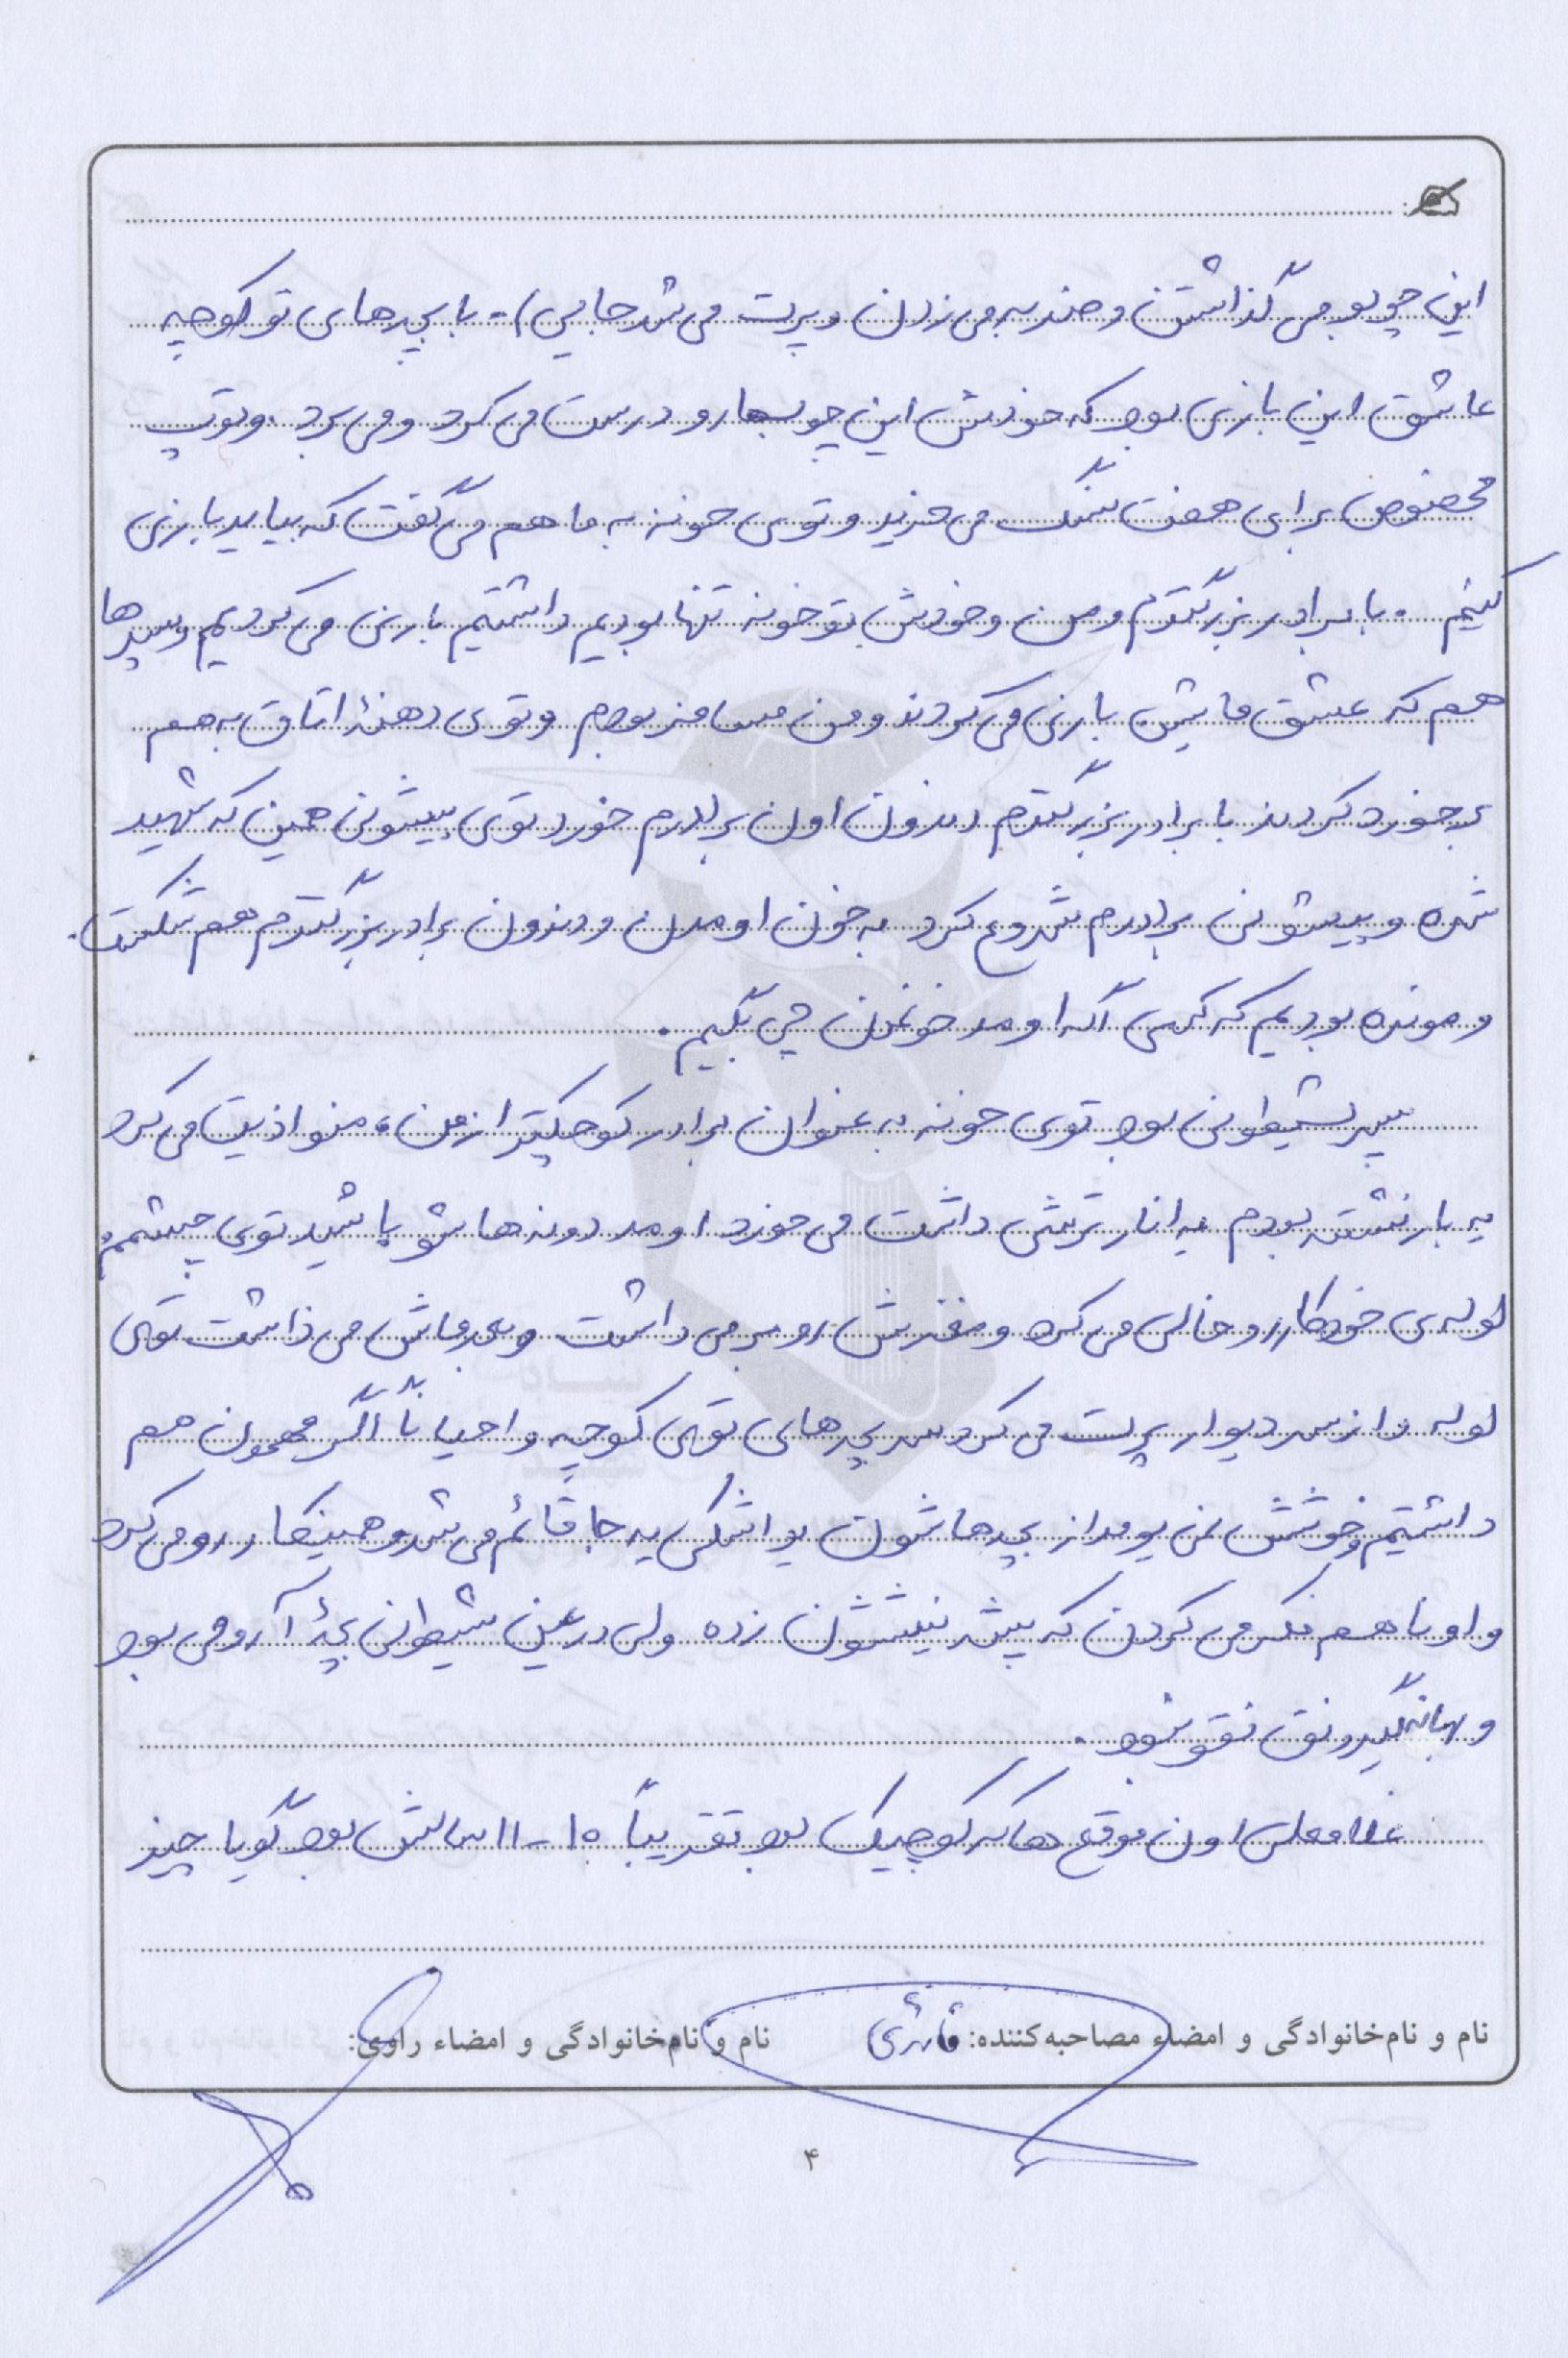 این چوبو می‌گذاشتن و ضربه می‌زدن و پرت می‌شد جایی) - با بچه‌های تو کوچه
عاشق این بازی بود که خودش این چوب‌ها رو درست می‌کرد و می‌برد. و توپ
مخصوص برای هفت سنگ می‌خرید و توی خونه به ما هم می‌گفت که بیاید بازی
کنیم. با برادر بزرگترم و من و خودش تو خونه تنها بودیم داشتیم بازی می‌کردیم و پسرها
هم که عشق ماشین بازی می‌کردند و من مسافر بودم و توی دهنهٔ اتاق به هم
برخورد کردند با برادر بزرگترم دندون اون برادرم خورد توی پیشونی همین که شهید
شده و پیشونی برادرم شروع کرد به خون اومدن و دندون برادر بزرگترم هم شکست.
و مونده بودیم که کسی اگه اومد خونمون چی بگیم.
پسر شیطونی بود توی خونه به عنوان برادر کوچکتر از من، منو اذیت می‌کرد
یه بار نشسته بودم یه انار ترشی داشت می‌خورد اومد دونه‌هاشو پاشید توی چشمم
لوله‌ی خودکار رو خالی می‌کرد و مغزش رو برمی‌داشت و بعد ماش می‌ذاشت توی
لوله و از سر دیوار پرت می‌کرد سر بچه‌های توی کوچه و احیاناً اگر مهمون هم
داشتیم و خوشش نمی‌یومد از بچه‌هاشون یواشکی یه جا قائم می‌شد و همینکار رو می‌کرد
و اونا هم فکر می‌کردن که پشه نیششون زده ولی در عین شیطونی بچهٔ آرومی بود
و بهانه‌گیر و نق نقو نبود.
غلامعلی اون موقع‌ها که کوچیک بود تقریباً ۱۰-۱۱ سالش بود گویا چیز
نام و نام‌خانوادگی و امضاء مصاحبه‌کننده: نام و نام‌خانوادگی و امضاء راوی:
۴